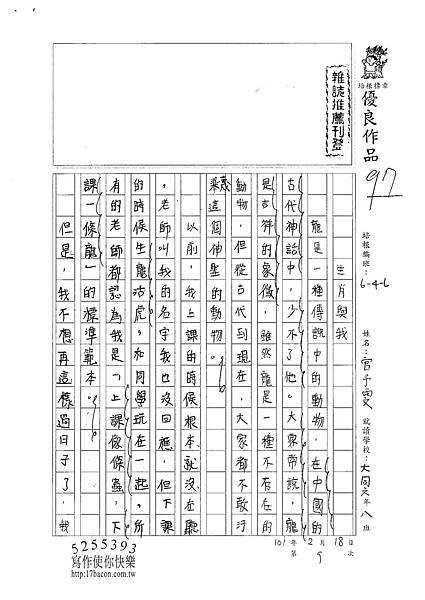 雜誌推薦刊登
培根標章
優良作品
97
培根編班：6-4-6
姓名：宮予雯
就讀學校：大同 六年八班
101年2月18日
第9次
生肖與我
龍是一種傳說中的動物，在中國的
古代神話中，少不了他。大家常說，龍
是吉祥的象徵，雖然龍是一種不存在的
動物，但從古代到現在，大家都不敢汙
衊這個神聖的動物。
以前，我上課的時候根本就沒在聽
，老師叫我的名字我也沒回應，但下課
的時候生龍活虎，和同學玩在一起，所
有的老師都認為我是「上課像條蟲，下
課一條龍」的標準範本。
但是，我不想再這樣過日子了，我
5255393
寫作使你快樂
http://17bacon.com.tw